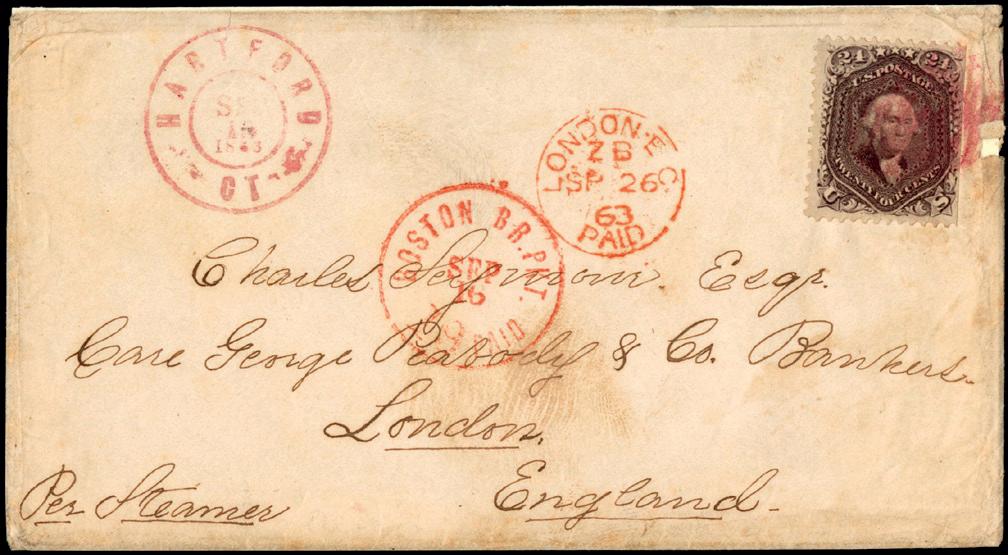 HARTFORD
CT
1863
LONDON·E.C
ZB
SP 26
63
PAID
BOSTON BR. PKT.
SEP
16
PAID
24 24
U.S. POSTAGE
TWENTY FOUR CENTS
U S
Charles Seymour. Esqr.
Care George Peabody & Co. Bankers.
London.
England.
Per Steamer